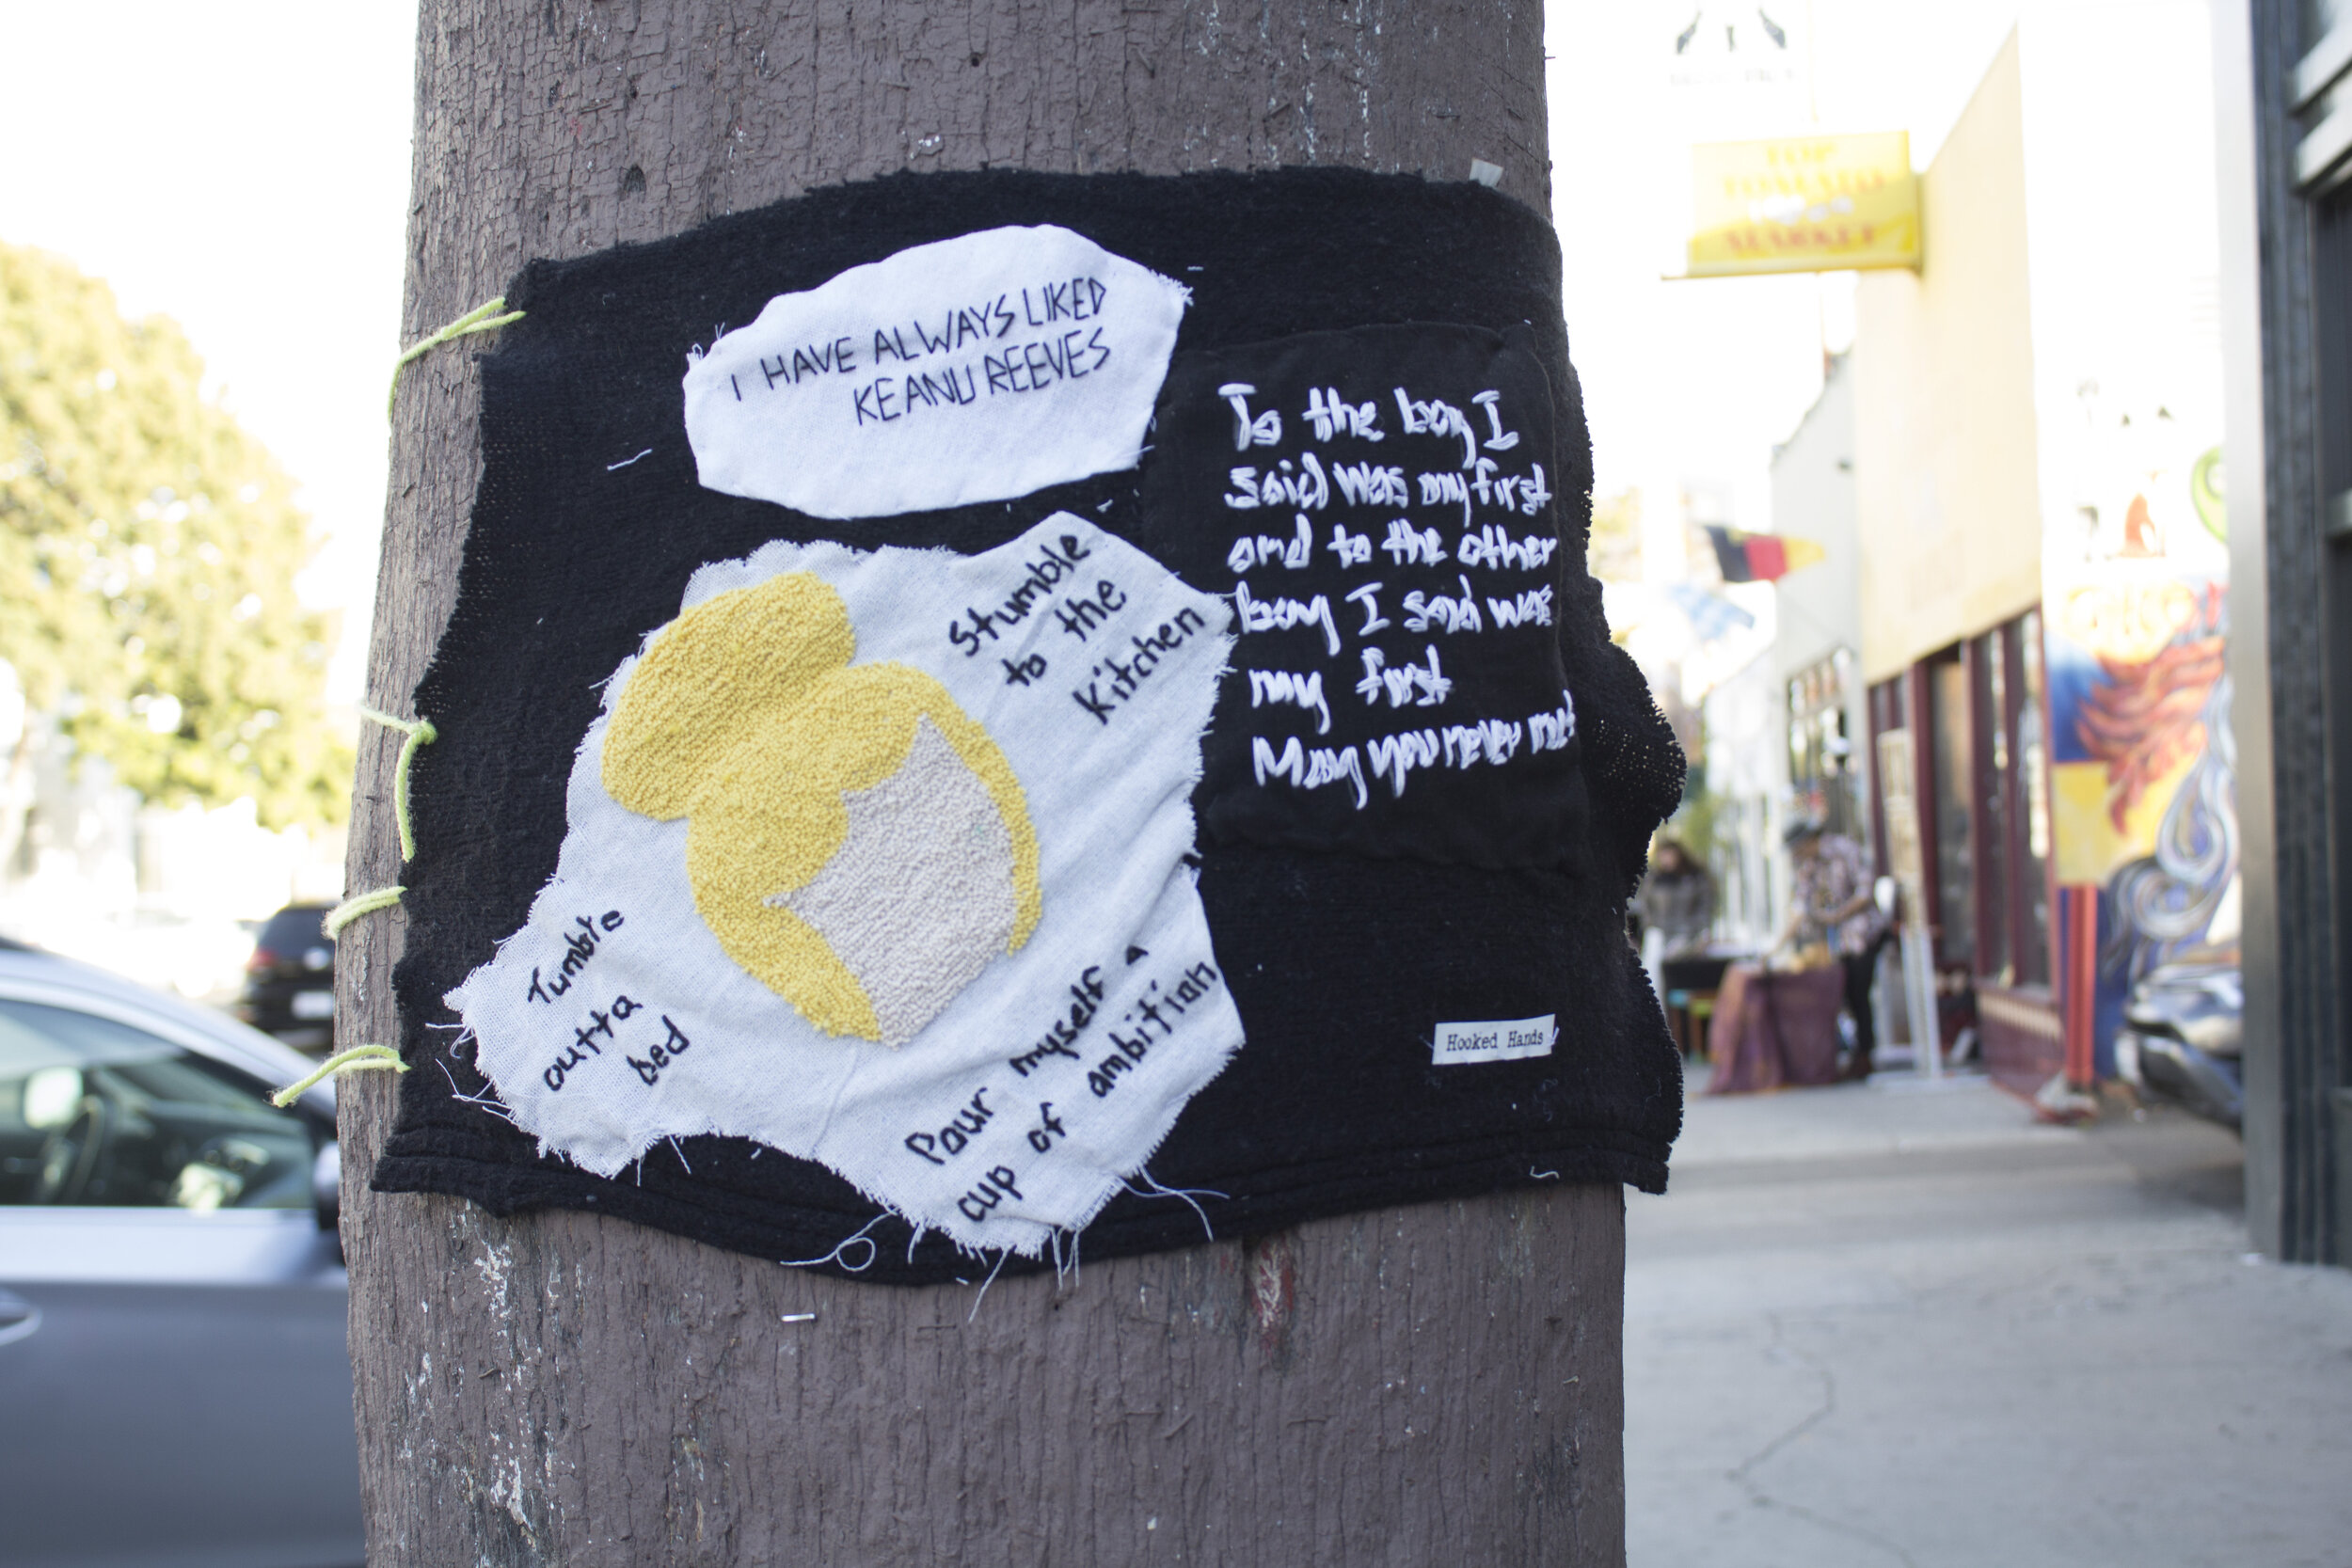 I HAVE ALWAYS LIKED
KEANU REEVES
To the boy I
said was my first
and to the other
boy I said was
my first
May you never
Tumble
outta
bed
Stumble
to the
Kitchen
Pour myself a
cup of ambition
Hooked Hands
TOP
MARKET